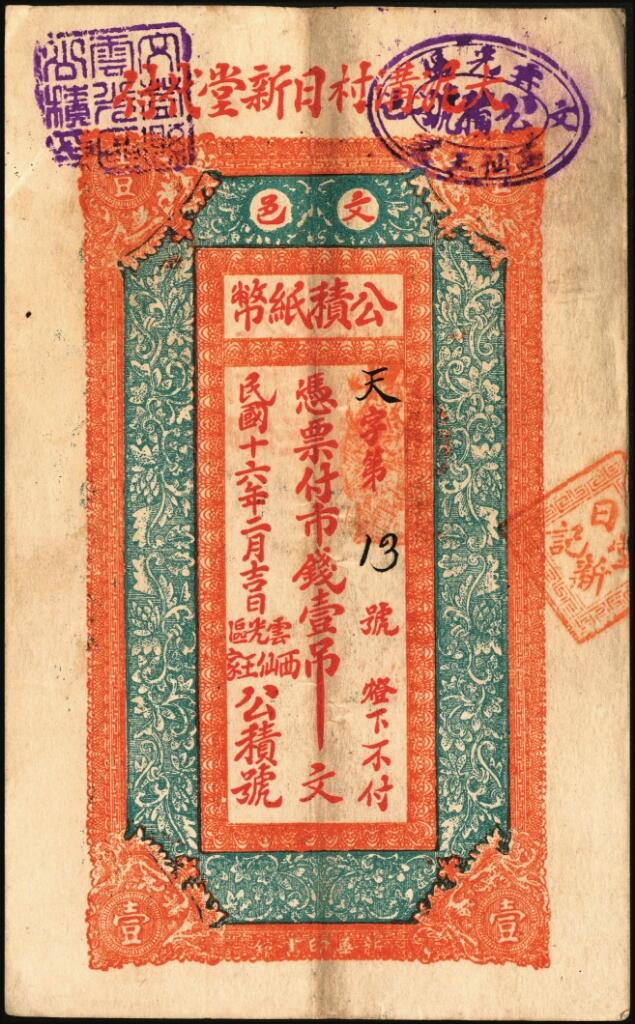 溝村日新堂
壹
文邑
公積紙幣
天字第13號 燈下不付
憑票付市錢壹吊文
民國十六年二月吉日
雲光區
西仙王家
公積號
日新
記
壹
壹